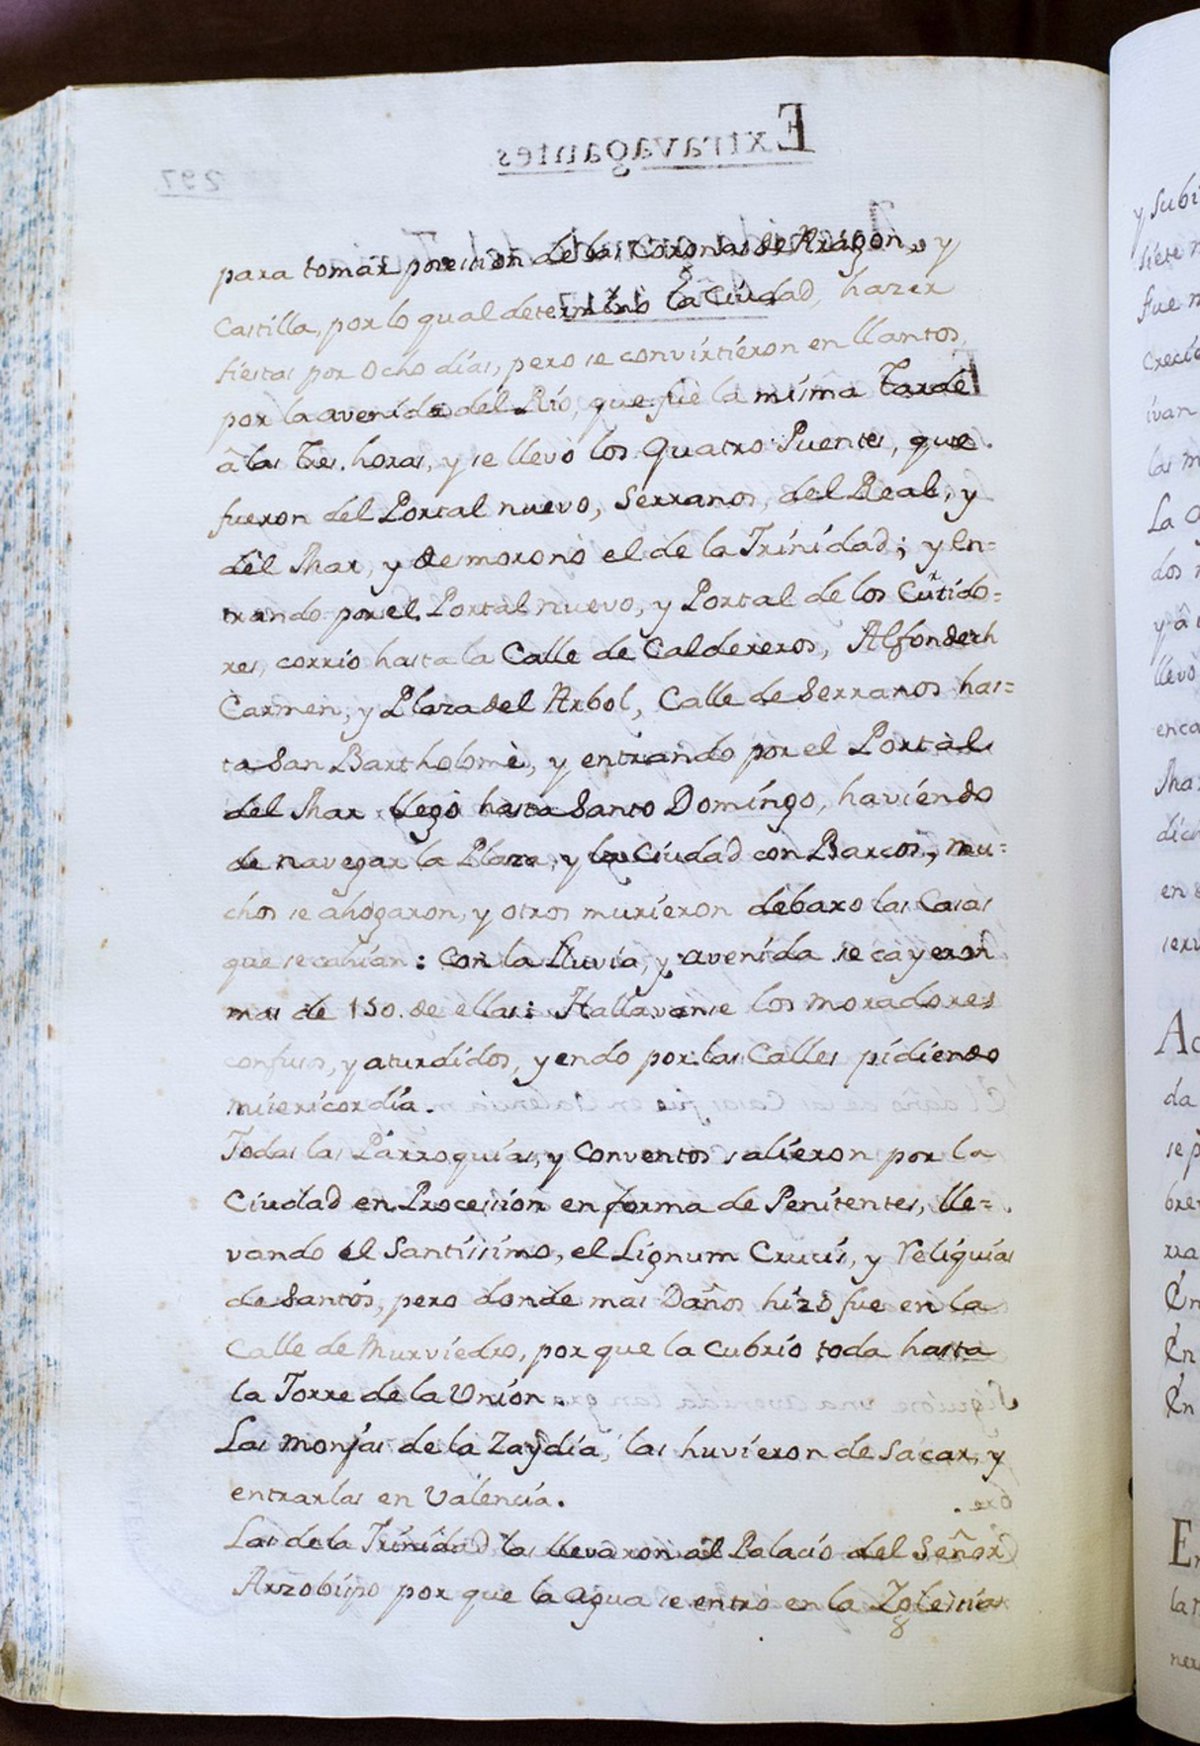 Extravagantes
297
para tomar possesion de las Coronas de Aragon, y
Castilla, por lo qual determinó la Ciudad, hazer
fiestas por Ocho dias, pero se convirtieron en llantos,
por la avenida del Rio, que fue la misma Tarde
â las Tres horas, y se llevó los Quatro Puentes, que
fueron del Portal nuevo, Serranos, del Real, y
del Mar, y desmoronó el de la Trinidad; y en=
trando por el Portal nuevo, y Portal de los Curtido=
res, corrió hasta la Calle de Caldereros, Alfonderh
Carmen, y Plaza del Arbol, Calle de Serranos has=
ta San Bartholomè, y entrando por el Portal
del Mar llegó hasta Santo Domingo, haviendo
de navegar la Plaza, y la Ciudad con Barcos, mu=
chos se ahogaron, y otros murieron debaxo las Casas
que se cahian: con la lluvia, y avenida se cayeron
mas de 150. de ellas: Hallavanse los moradores
confusos, y aturdidos, yendo por las Calles pidiendo
misericordia.
Todas las Parroquias, y Conventos salieron por la
Ciudad en Procession en forma de Penitentes, lle=
vando el Santissimo, el Lignum Crucis, y Reliquias
de Santos, pero donde mas Daños hizo fue en la
Calle de Murviedro, por que la cubrio toda hasta
la Torre de la Union.
Las Monjas de la Zaydia, las huvieron de sacar, y
entrarlas en Valencia.
Las de la Trinidad las llevaron al Palacio del Señor
Arzobispo por que la agua se entró en la Yglesia
y subi
siete
fue
creci
ivan
las m
La
dos
y â
llevó
enca
Mar
dic
en
serv
Ac
da
se p
brev
rra
En
En
En
En
la
ner